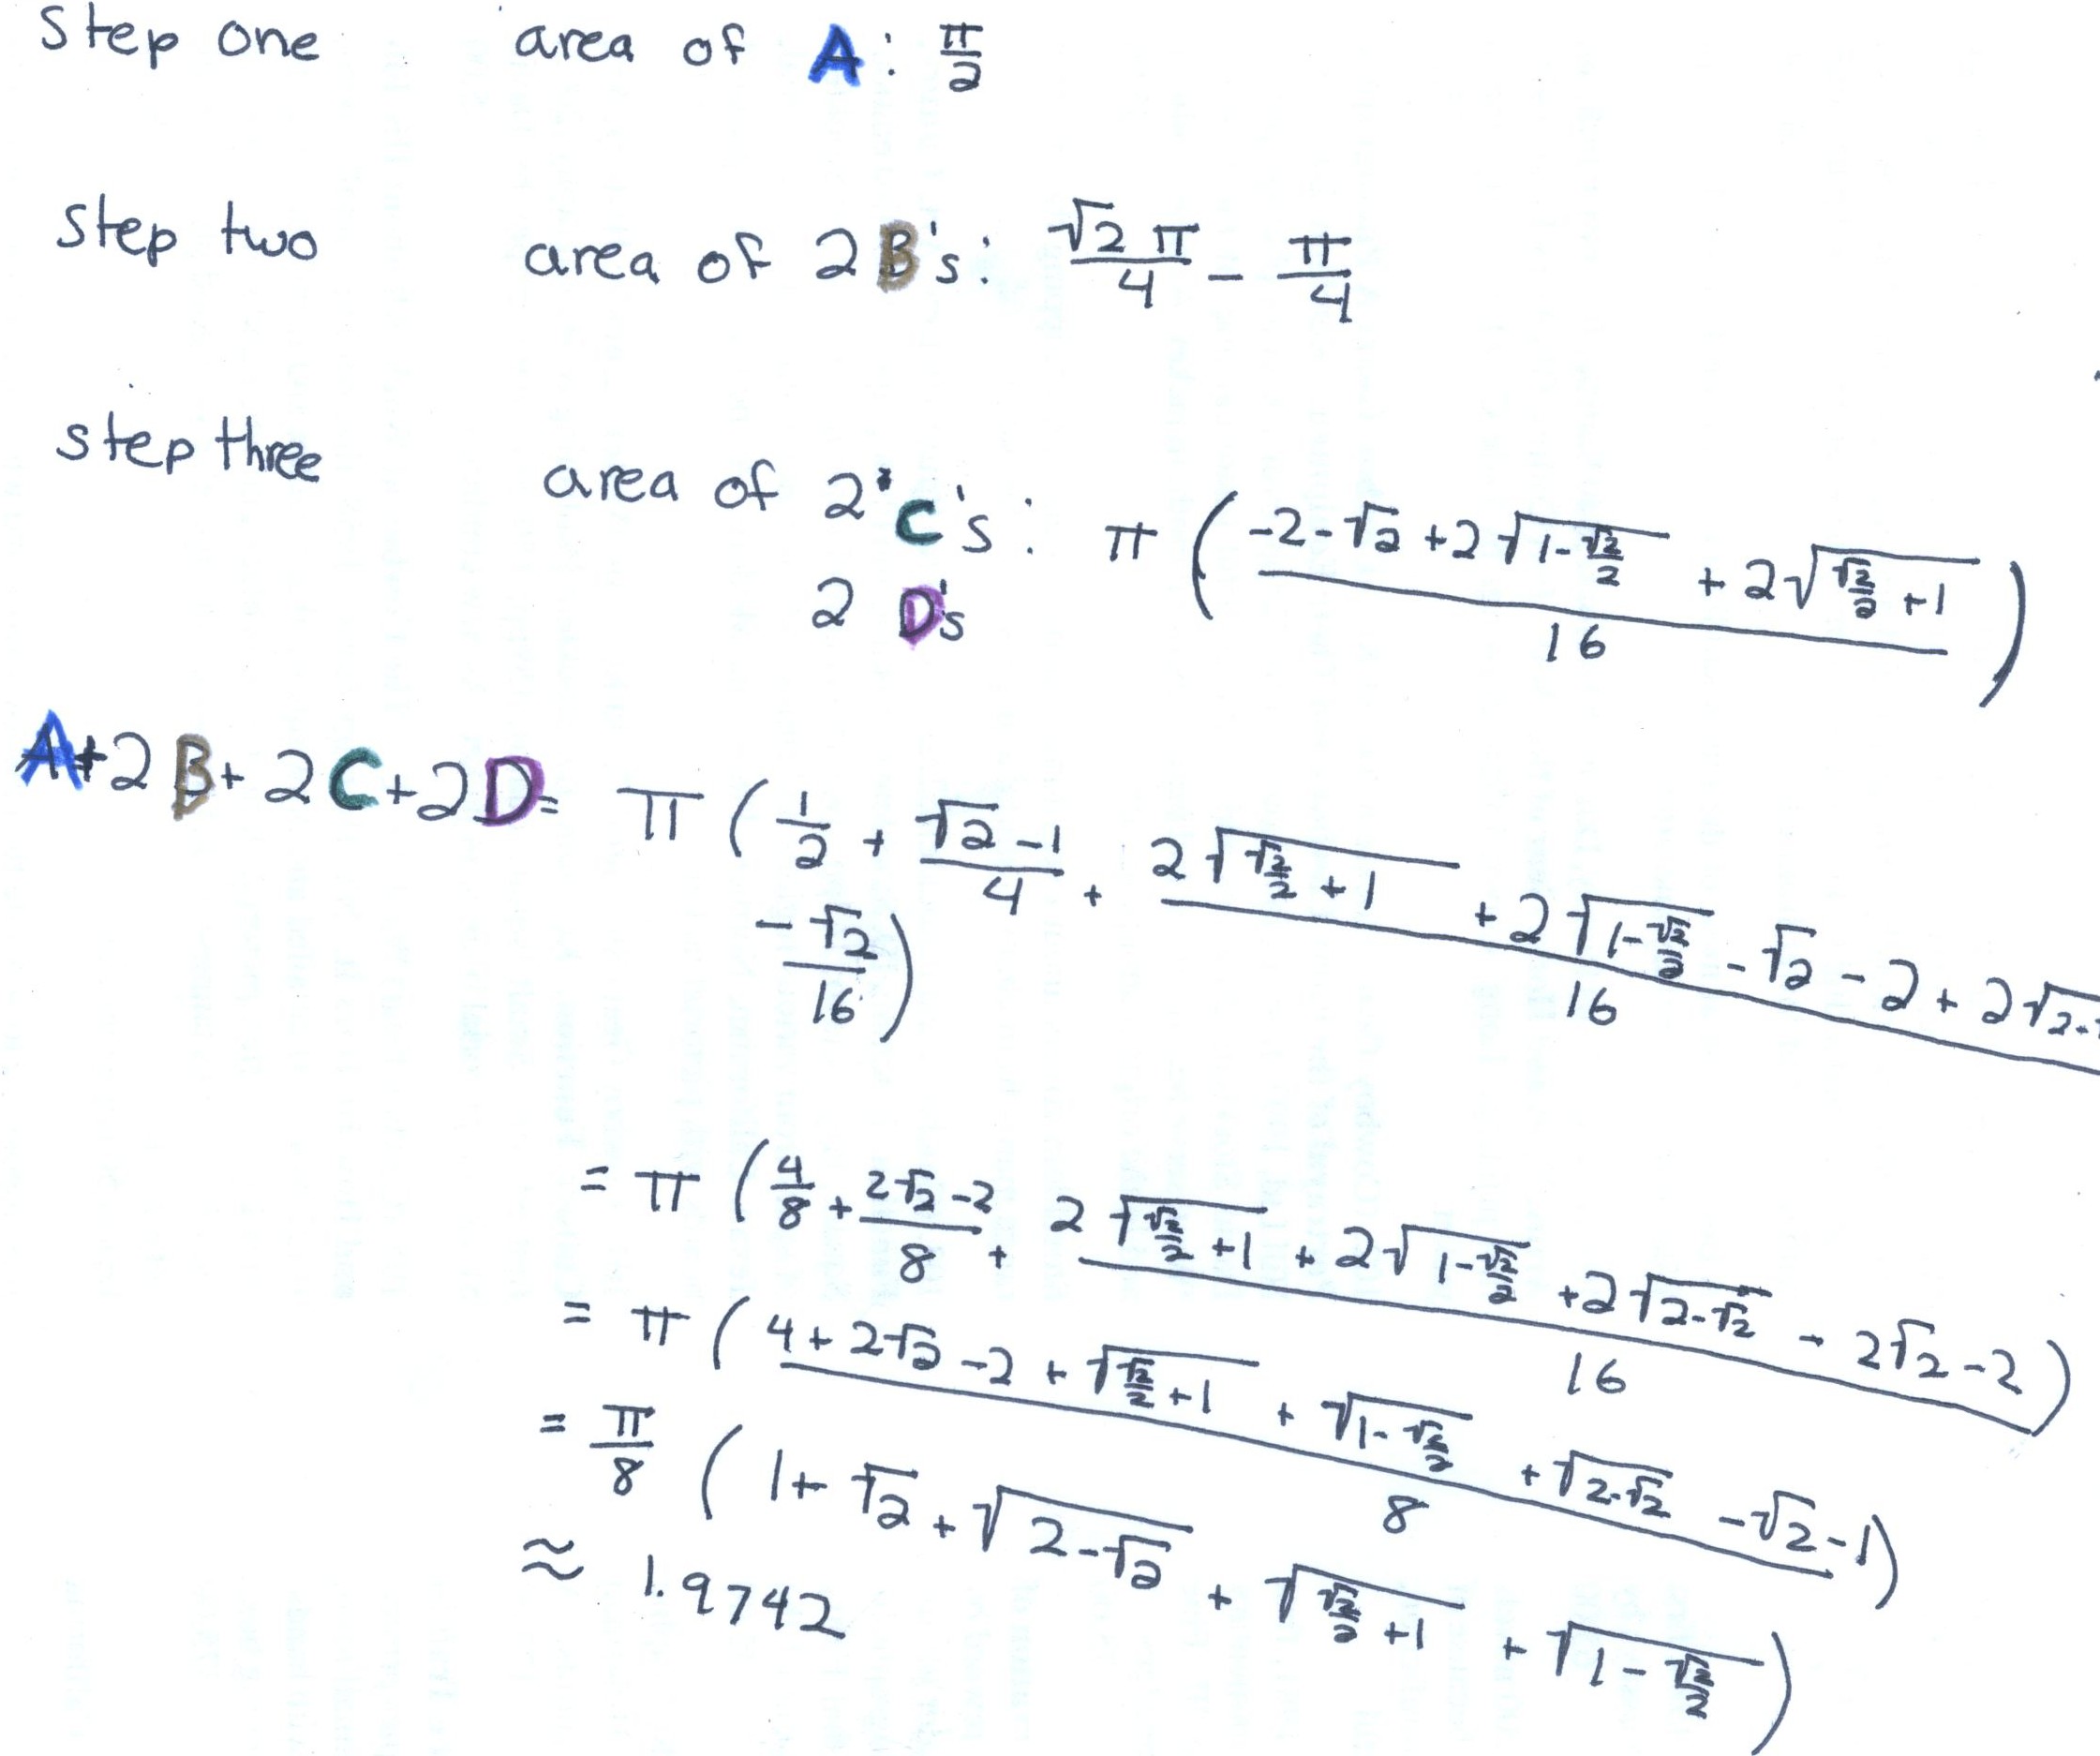 Step one area of A: π/2
Step two area of 2 B's: √2 π/4 - π/4
step three area of 2 C's: π ( (-2 - √2 + 2√(1 - √2/2) + 2√(√2/2 + 1)) / 16 )
2 D's
A + 2B + 2C + 2D = π ( 1/2 + (√2 - 1)/4 + (2√(√2/2 + 1) + 2√(1 - √2/2) - √2 - 2 + 2√2-
- √2 / 16 )
= π ( 4/8 + (2√2 - 2)/8 + (2√(√2/2 + 1) + 2√(1 - √2/2) + 2√(2 - √2) - 2√2 - 2) / 16 )
= π ( (4 + 2√2 - 2 + √(√2/2 + 1) + √(1 - √2/2) + √(2 - √2) - √2 - 1) / 8 )
= π/8 ( 1 + √2 + √(2 - √2) + √(√2/2 + 1) + √(1 - √2/2) )
≈ 1.9742